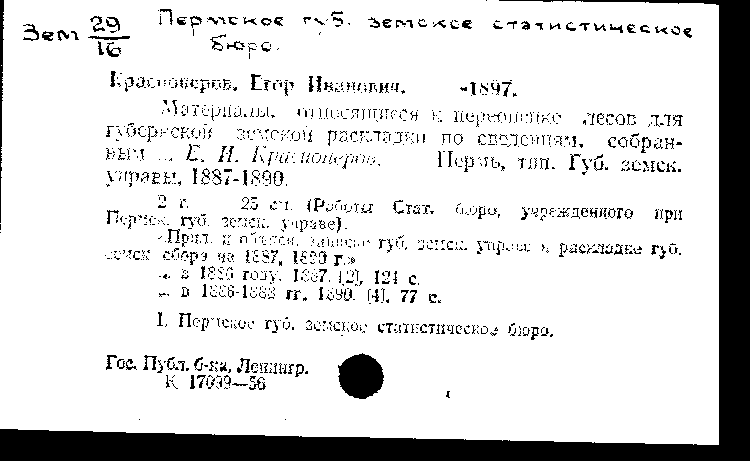 Зем 29/16 Пермское губ. земское статистическое
бюро.
Красноперов, Егор Иванович. -1897.
Материалы, относящиеся к переоценке лесов для
губернской земской раскладки по сведениям, собран-
ным ... Е. И. Красноперов. Пермь, тип. Губ. земск.
управы, 1887-1890.
2 т. 25 см. (Работы Стат. бюро, учрежденного при
Пермск. губ. земск. управе).
«Прил. к объясн. записке губ. земск. управы к раскладке губ.
земск. сбора на 1887, 1890 г.»
... в 1886 году. 1887. [2], 124 с.
... в 1886-1888 гг. 1890. [4], 77 с.
1. Пермское губ. земское статистическое бюро.
Гос. Публ. б-ка, Ленингр.
К 17099—56